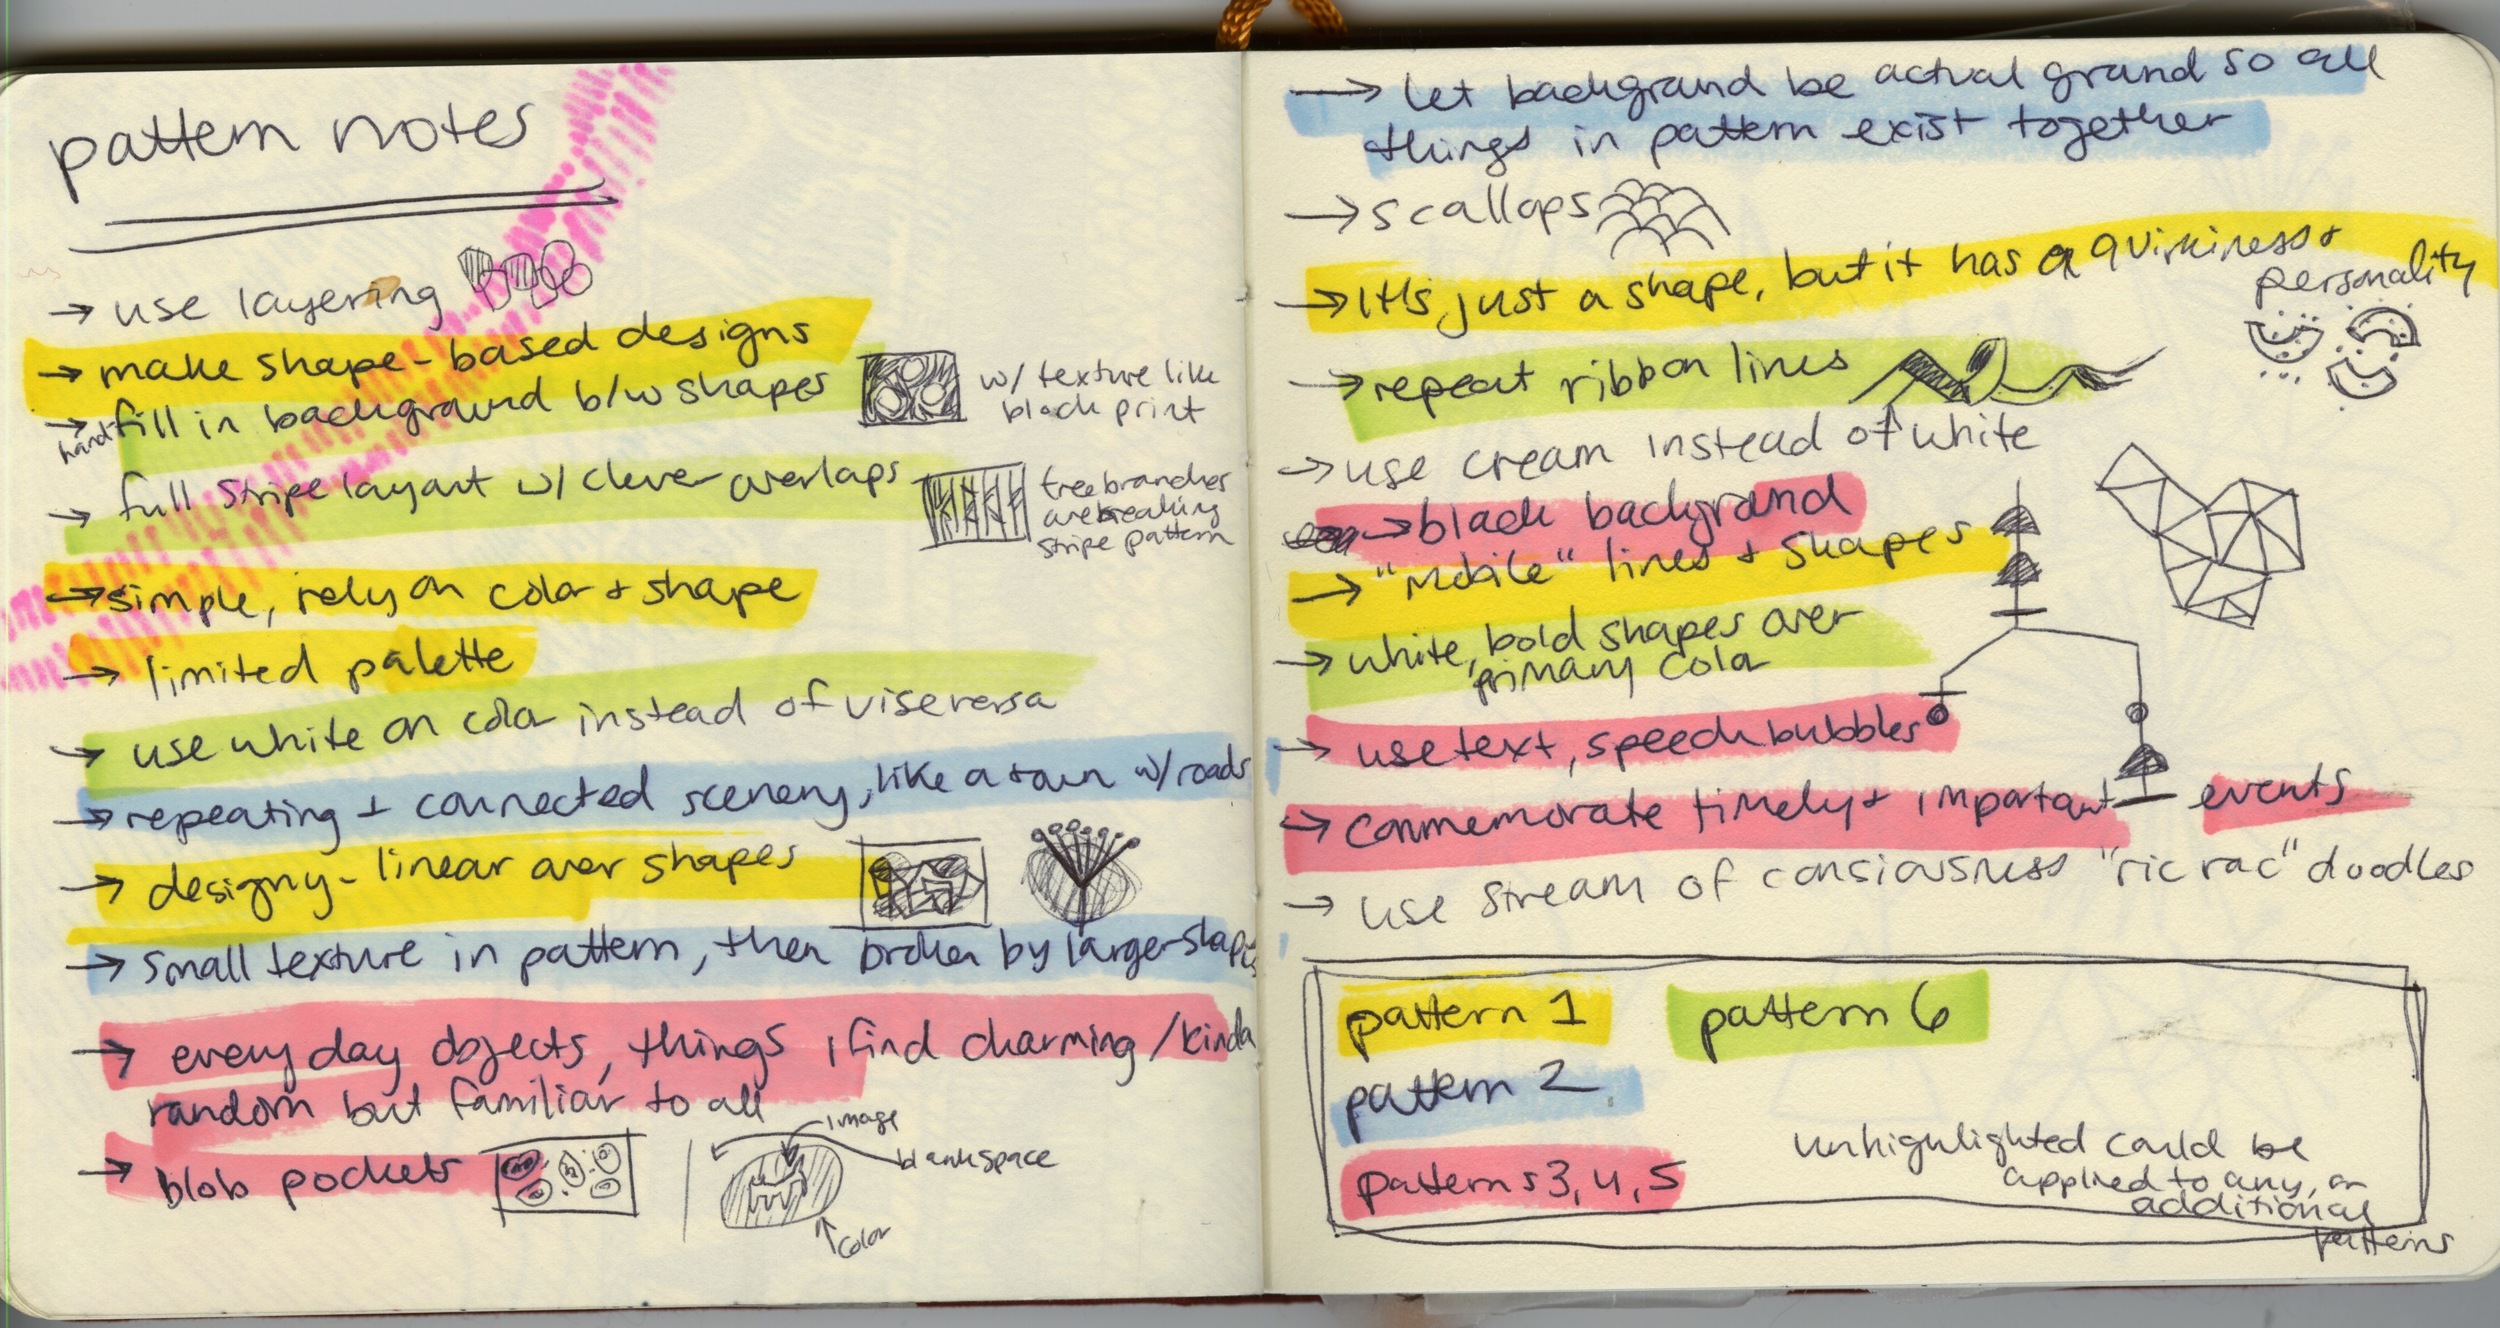 pattern notes
→ use layering
→ make shape-based designs
→ fill in background b/w shapes
hand
w/ texture like
block print
→ full stripe layout w/ clever overlaps
tree branches
are breaking
stripe pattern
→ simple, rely on color + shape
→ limited palette
→ use white on color instead of viseversa
→ repeating + connected scenery, like a town w/ roads
→ designy - linear over shapes
→ small texture in pattern, then broken by larger shapes
→ everyday objects, things i find charming / kinda
random but familiar to all
→ blob pockets
image
blank space
color
→ let background be actual ground so all
things in pattern exist together
→ scallops
→ It's just a shape, but it has a quirkiness +
personality
→ repeat ribbon lines
→ use cream instead of white
→ black background
→ "mobile" lines + shapes
→ white, bold shapes over
primary color
→ use text, speech bubbles
→ commemorate timely + important events
→ use stream of consiousness "ric rac" doodles
pattern 1
pattern 6
pattern 2
patterns 3, 4, 5
unhighlighted could be
applied to any, or
additional
patterns